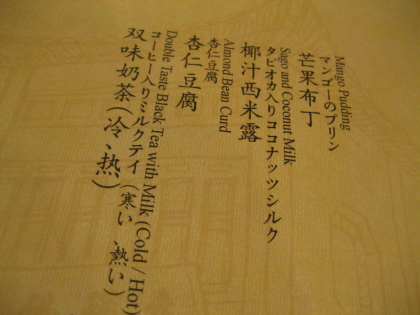 Mango Pudding
マンゴーのプリン
芒果布丁
Sago and Coconut Milk
タピオカ入りココナッツシルク
椰汁西米露
Almond Bean Curd
杏仁豆腐
杏仁豆腐
Double Taste Black Tea with Milk (Cold / Hot)
コーヒー入りミルクテイ (寒い、熱い)
双味奶茶(冷、热)